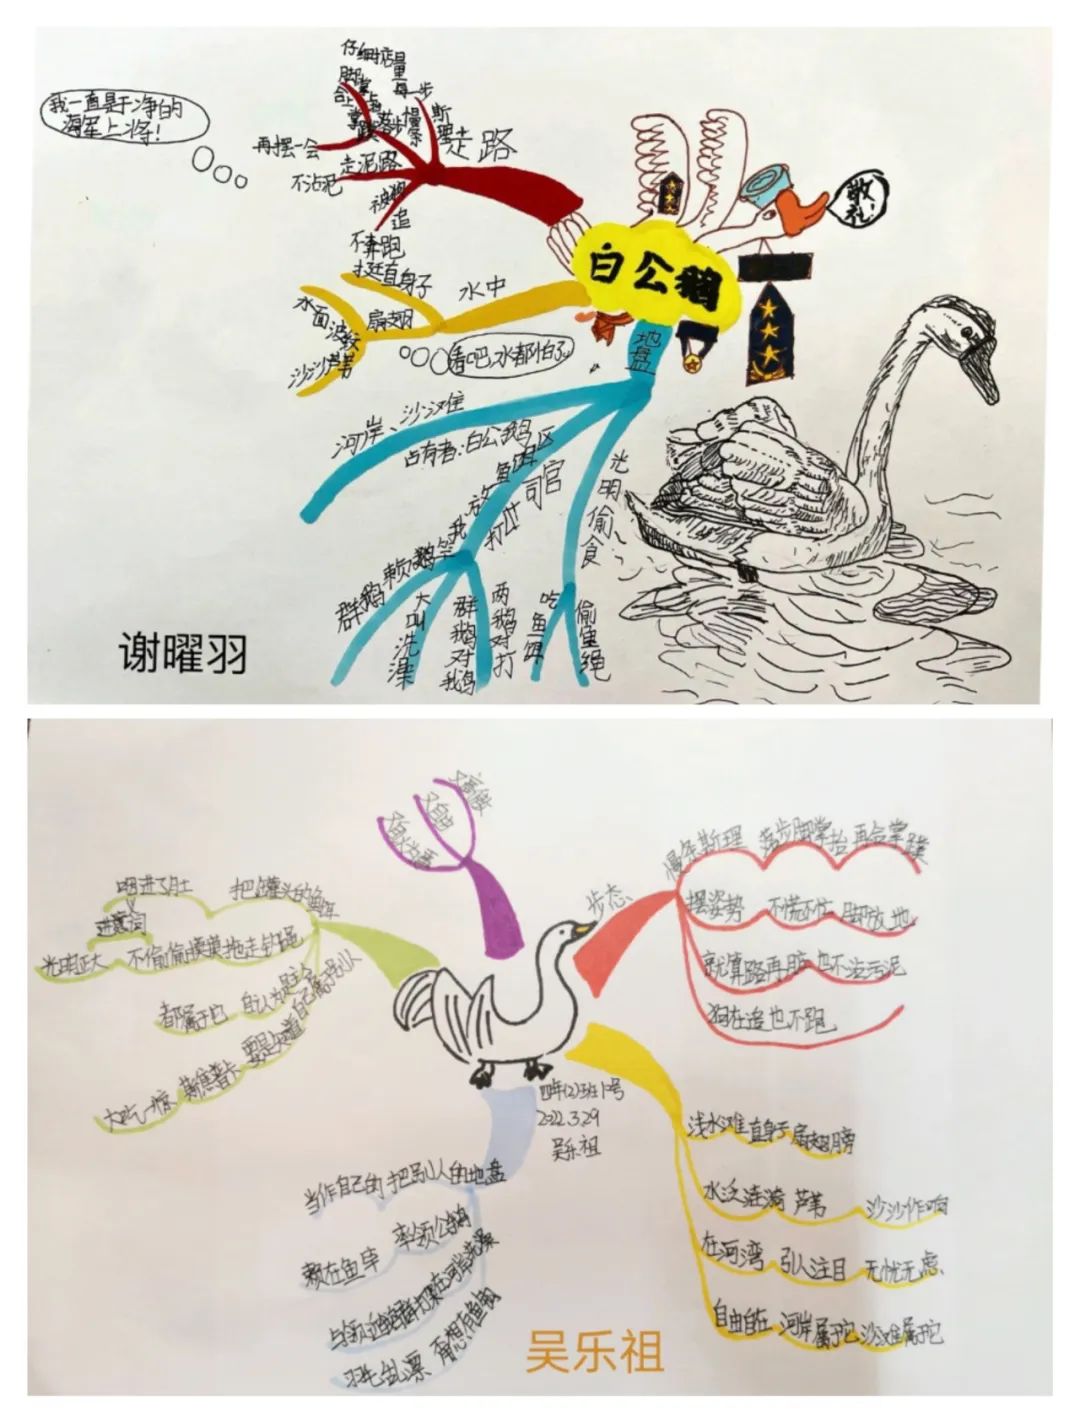 我一直是干净的
海军上将!
仔细掂量
每一步
慢条
斯
理
走路
再摆一会
走泥路
不沾泥
被狗
追
不奔跑
挺直身子
水中
扇翅
水面波纹
沙沙芦苇
看吧,水都怕了。
白公鹅
敬礼!
地盘
河岸、沙滩
占有者:白公鹅
鱼饵区
打官司
光明偷食
群鹅
大叫洗澡
两鹅对打
吃鱼饵
偷鱼绳
谢曜羽
又高傲
又自由
步态
慢条斯理
落步脚掌抬
再合掌
摆姿势
不慌不忙
脚放地
就算路再脏
也不沾污泥
狗在追也不跑
把罐头的鱼饵
光明正大
不偷偷摸摸
拖走
都属于它
自认为是主人
大吃一惊
斯焦普卡
要是知道自己属于别人
四年(2)班1号
2022.3.29
吴乐祖
浅水滩
直身子
扇翅膀
水泛涟漪
芦苇
沙沙作响
在河湾
引人注目
无忧无虑
自由自在
河岸属于它
沙滩属于它
当作自己的
把别人的地盘
率领公鹅
赖在鱼竿
在河岸洗澡
羽毛乱漂
吴乐祖